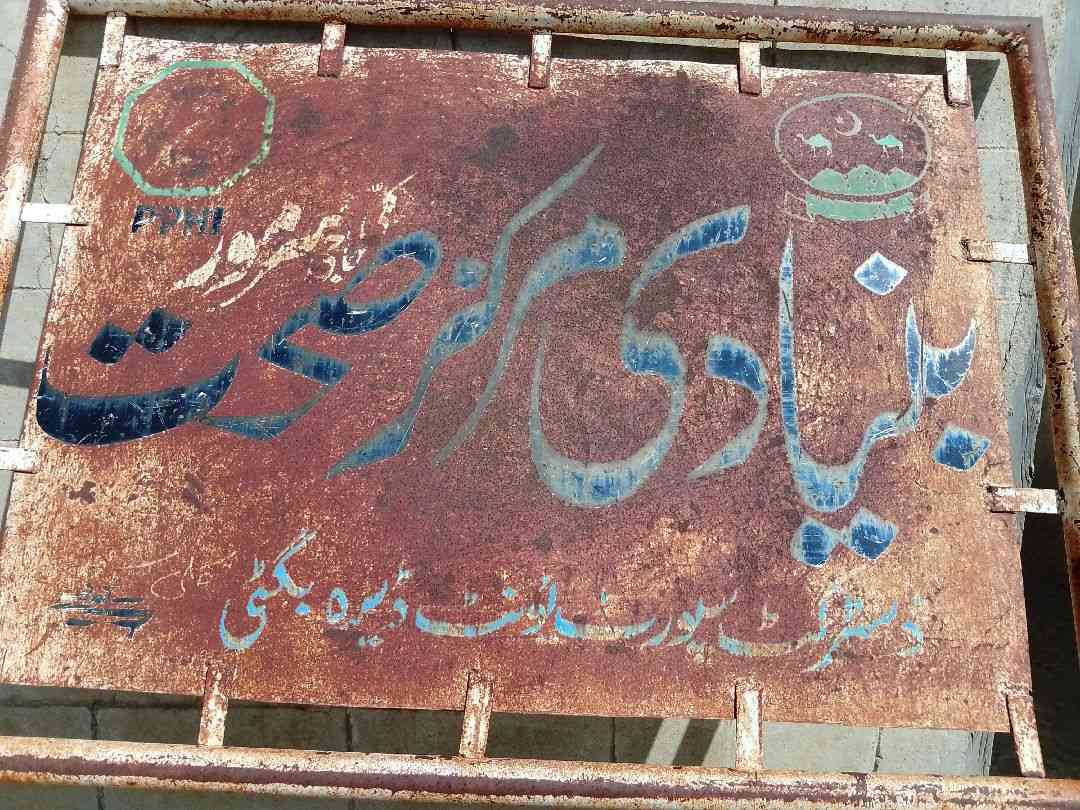 PPHI
بنیادی مرکز صحت
ڈسٹرکٹ سپورٹ یونٹ ڈیرہ بگٹی